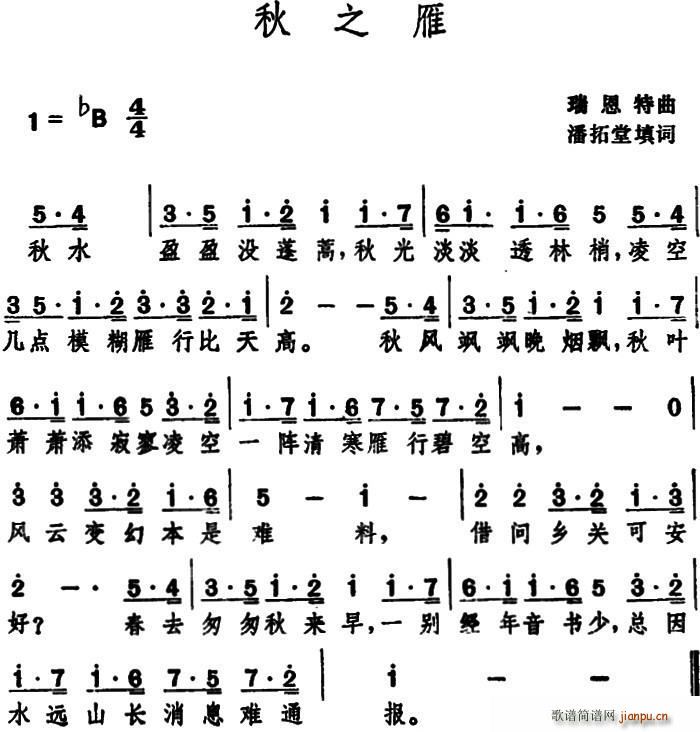 秋之雁
1= ♭B 4/4
瑞恩特曲
潘拓堂填词
5·4 | 3·5 i·2 i i·7 | 6 i· i·6 5 5·4
秋水 盈盈没蓬蒿,秋光淡淡 透林梢,凌空
3 5·i·2 3·3 2·i | 2 - - 5·4 | 3·5 i·2 i i·7
几点模糊雁行比天高。 秋风飒飒晚烟飘,秋叶
6·i i·6 5 3·2 | i·7 i·6 7·5 7·2 | i - - 0
萧萧添寂寥凌空一阵清寒雁行碧空高,
3 3 3·2 i·6 | 5 - i - | 2 2 3·2 i·3
风云变幻本是难 料, 借问乡关可安
2 -· 5·4 | 3·5 i·2 i i·7 | 6·i i·6 5 3·2
好? 春去匆匆秋来早,一别经年音书少,总因
i·7 i·6 7·5 7·2 | i - -
水远山长消息难通 报。
歌谱简谱网
jianpu.cn